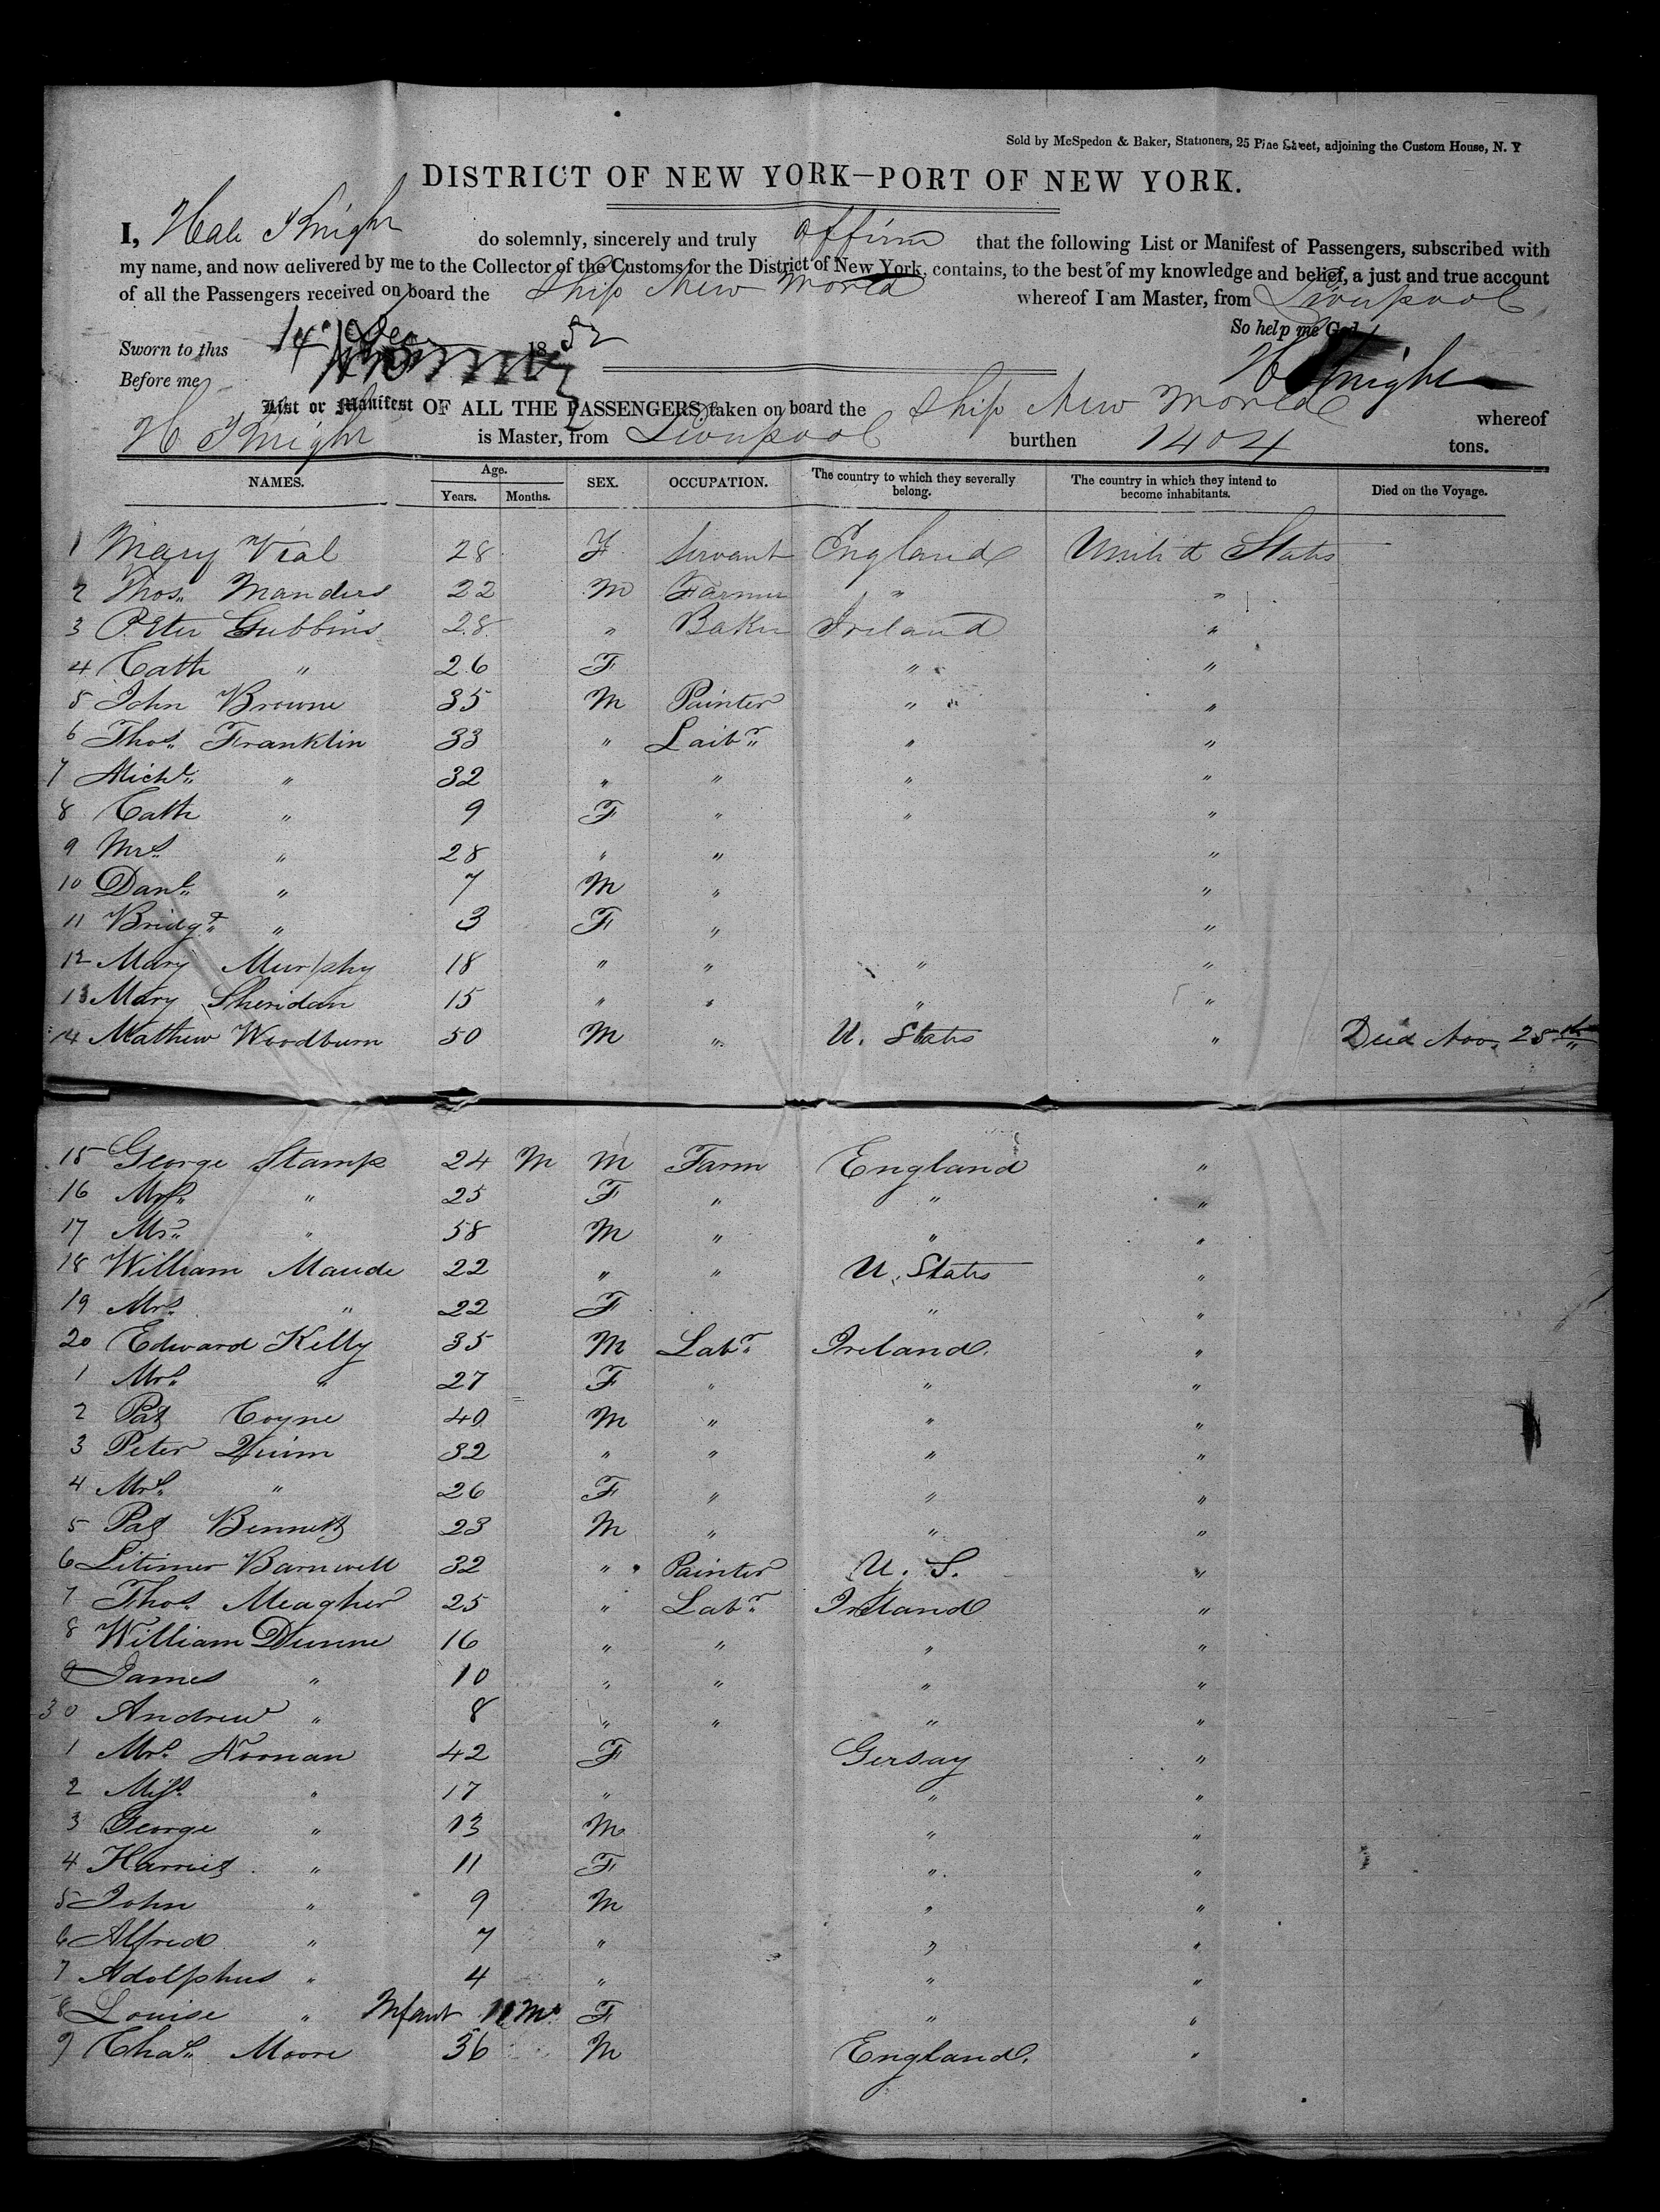 Sold by McSpedon & Baker, Stationers, 25 Pine Street, adjoining the Custom House, N. Y
DISTRICT OF NEW YORK—PORT OF NEW YORK.
I, Hale Knight do solemnly, sincerely and truly affirm that the following List or Manifest of Passengers, subscribed with
my name, and now delivered by me to the Collector of the Customs for the District of New York, contains, to the best of my knowledge and belief, a just and true account
of all the Passengers received on board the Ship New World whereof I am Master, from Liverpool
So help me God.
Sworn to this 14 Dec 1852
H Knight
Before me
List or Manifest OF ALL THE PASSENGERS taken on board the Ship New World whereof
H Knight is Master, from Liverpool burthen 1404 tons.
NAMES. Age. Years. Months. SEX. OCCUPATION. The country to which they severally belong. The country in which they intend to become inhabitants. Died on the Voyage.
1 Mary Vial 28 F Servant England United States
2 Thos. Manders 22 M Farmer " "
3 Peter Gubbins 28 " Baker Ireland "
4 Cath " 26 F " "
5 John Browne 35 M Painter " "
6 Thos. Franklin 33 " Laibr. " "
7 Michl. " 32 " " " "
8 Cath " 9 F " " "
9 Mrs. " 28 " " "
10 Danl. " 7 M " "
11 Bridgt. " 3 F " "
12 Mary Murphy 18 " " " "
13 Mary Sheridan 15 " " " "
14 Mathew Woodburn 50 M " U. States " Died Nov. 25th
15 George Stamp 24 M M Farm England "
16 Mrs. " 25 F " " "
17 Mr. " 58 M " " "
18 William Maude 22 " " U. States "
19 Mrs. " 22 F " "
20 Edward Kelly 35 M Labr. Ireland. "
1 Mrs. " 27 F " " "
2 Pat Coyne 40 M " " "
3 Peter Quinn 32 " " " "
4 Mrs. " 26 F " " "
5 Pat Bennett 23 M " " "
6 Litimer Barnwell 32 " Painter U. S. "
7 Thos. Meagher 25 " Labr. Ireland "
8 William Dunne 16 " " " "
9 James " 10 " " " "
30 Andrew " 8 " " " "
1 Mrs. Noonan 42 F Gersay "
2 Miss. " 17 " " "
3 George " 13 M " "
4 Harriet " 11 F " "
5 John " 9 M " "
6 Alfred " 7 " " "
7 Adolphus " 4 " " "
8 Louise " Infant 11 Ms F " "
9 Chas. Moore 36 M England. "